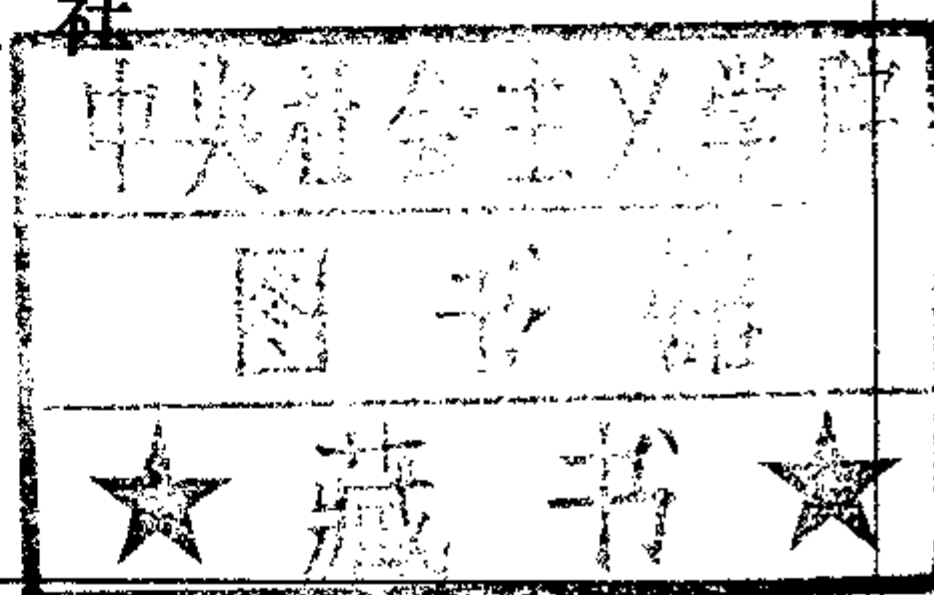 社
中央社会主义学院
图书馆
★藏书★